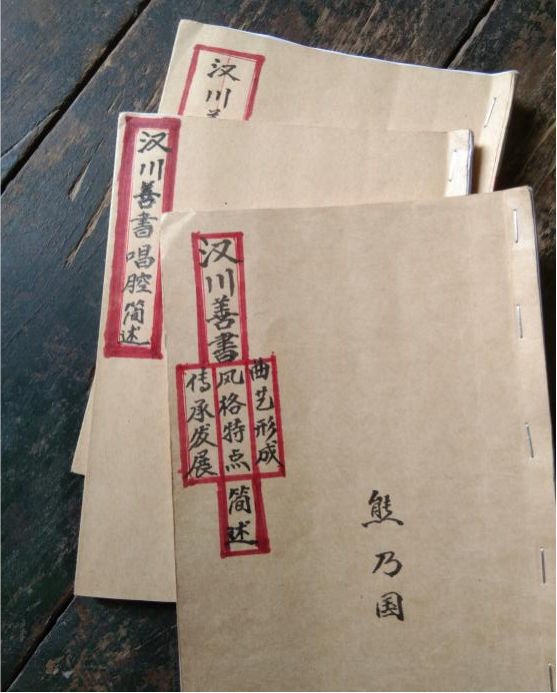 汉川善
汉川善書唱腔简述
汉川善書
曲艺形成
风格特点
传承发展
简述
熊乃国